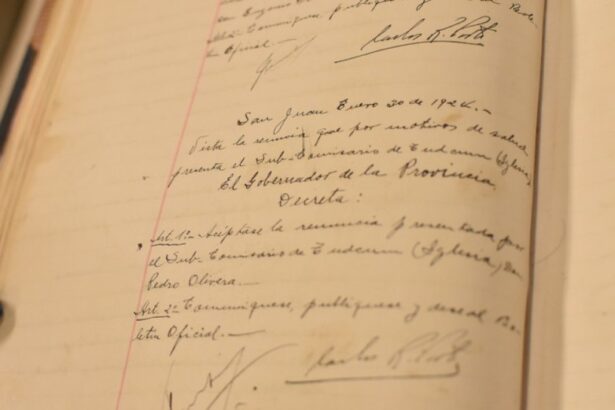 comuniquese, publiquese y dese al Bole-
tin Oficial.—
Carlos R. Porto
San Juan Enero 30 de 1924.—
Vista la renuncia que por motivos de salud
presenta el Sub-Comisario de Tudcum (Iglesia)
El Gobernador de la Provincia,
Decreta:
Art. 1º- Acéptase la renuncia presentada por
el Sub-Comisario de Tudcum (Iglesia) Don
Pedro Olivera.—
Art. 2º- Comuniquese, publiquese y dese al Bo-
letin Oficial.—
Carlos R. Porto